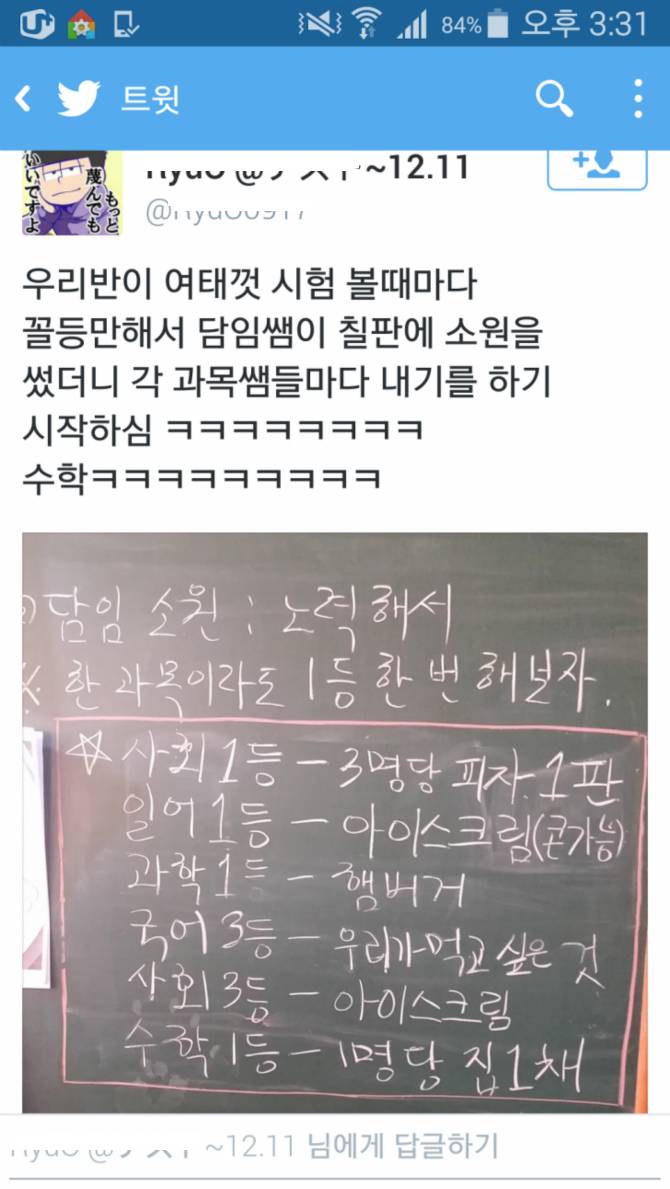 84% 오후 3:31
트윗
~12.11
우리반이 여태껏 시험 볼때마다
꼴등만해서 담임쌤이 칠판에 소원을
썼더니 각 과목쌤들마다 내기를 하기
시작하심 ㅋㅋㅋㅋㅋㅋㅋㅋ
수학ㅋㅋㅋㅋㅋㅋㅋㅋㅋ
담임 소원 : 노력해서
※ 한 과목이라도 1등 한 번 해보자.
☆ 사회 1등 - 3명당 피자 1판
일어 1등 - 아이스크림(콘가능)
과학 1등 - 햄버거
국어 3등 - 우리가 먹고 싶은 것
사회 3등 - 아이스크림
수학 1등 - 1명당 집 1채
~12.11 님에게 답글하기